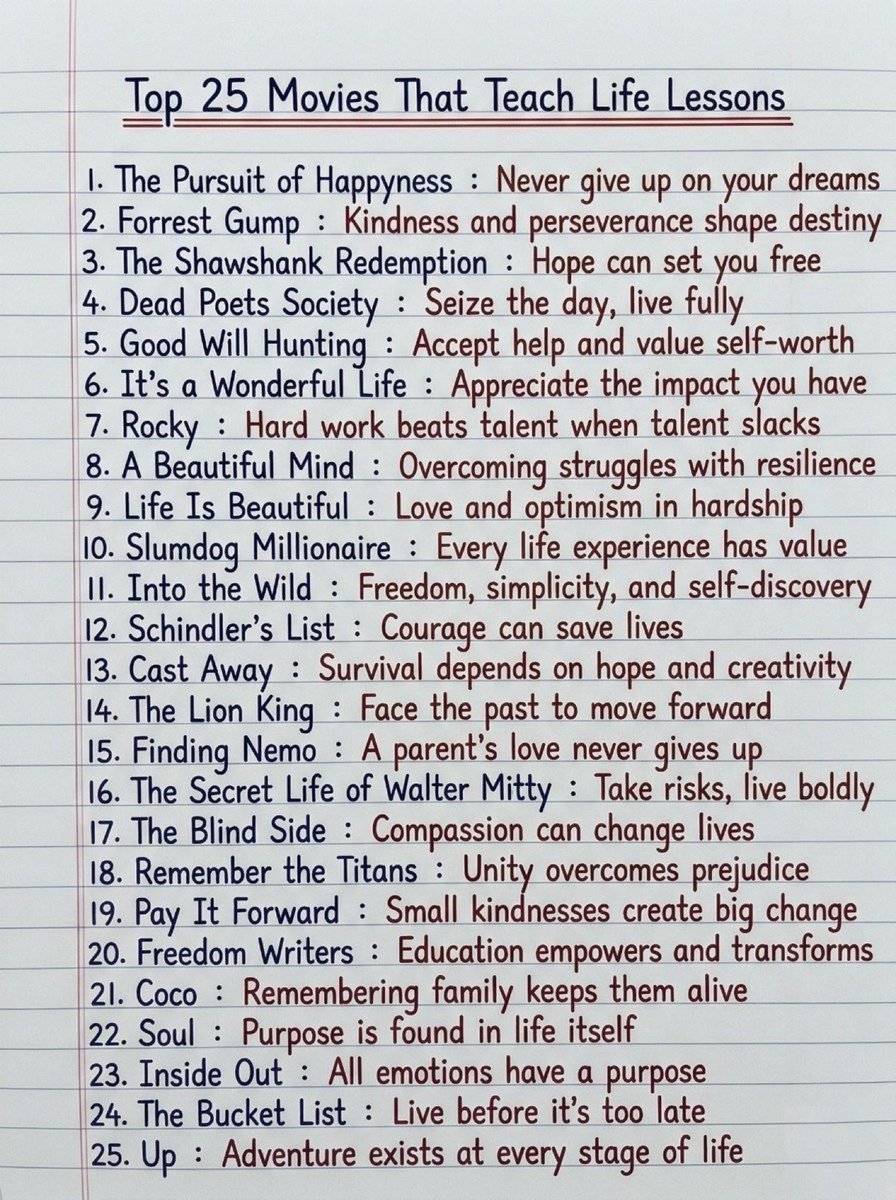 Top 25 Movies That Teach Life Lessons
1. The Pursuit of Happyness : Never give up on your dreams
2. Forrest Gump : Kindness and perseverance shape destiny
3. The Shawshank Redemption : Hope can set you free
4. Dead Poets Society : Seize the day, live fully
5. Good Will Hunting : Accept help and value self-worth
6. It's a Wonderful Life : Appreciate the impact you have
7. Rocky : Hard work beats talent when talent slacks
8. A Beautiful Mind : Overcoming struggles with resilience
9. Life Is Beautiful : Love and optimism in hardship
10. Slumdog Millionaire : Every life experience has value
11. Into the Wild : Freedom, simplicity, and self-discovery
12. Schindler's List : Courage can save lives
13. Cast Away : Survival depends on hope and creativity
14. The Lion King : Face the past to move forward
15. Finding Nemo : A parent's love never gives up
16. The Secret Life of Walter Mitty : Take risks, live boldly
17. The Blind Side : Compassion can change lives
18. Remember the Titans : Unity overcomes prejudice
19. Pay It Forward : Small kindnesses create big change
20. Freedom Writers : Education empowers and transforms
21. Coco : Remembering family keeps them alive
22. Soul : Purpose is found in life itself
23. Inside Out : All emotions have a purpose
24. The Bucket List : Live before it's too late
25. Up : Adventure exists at every stage of life